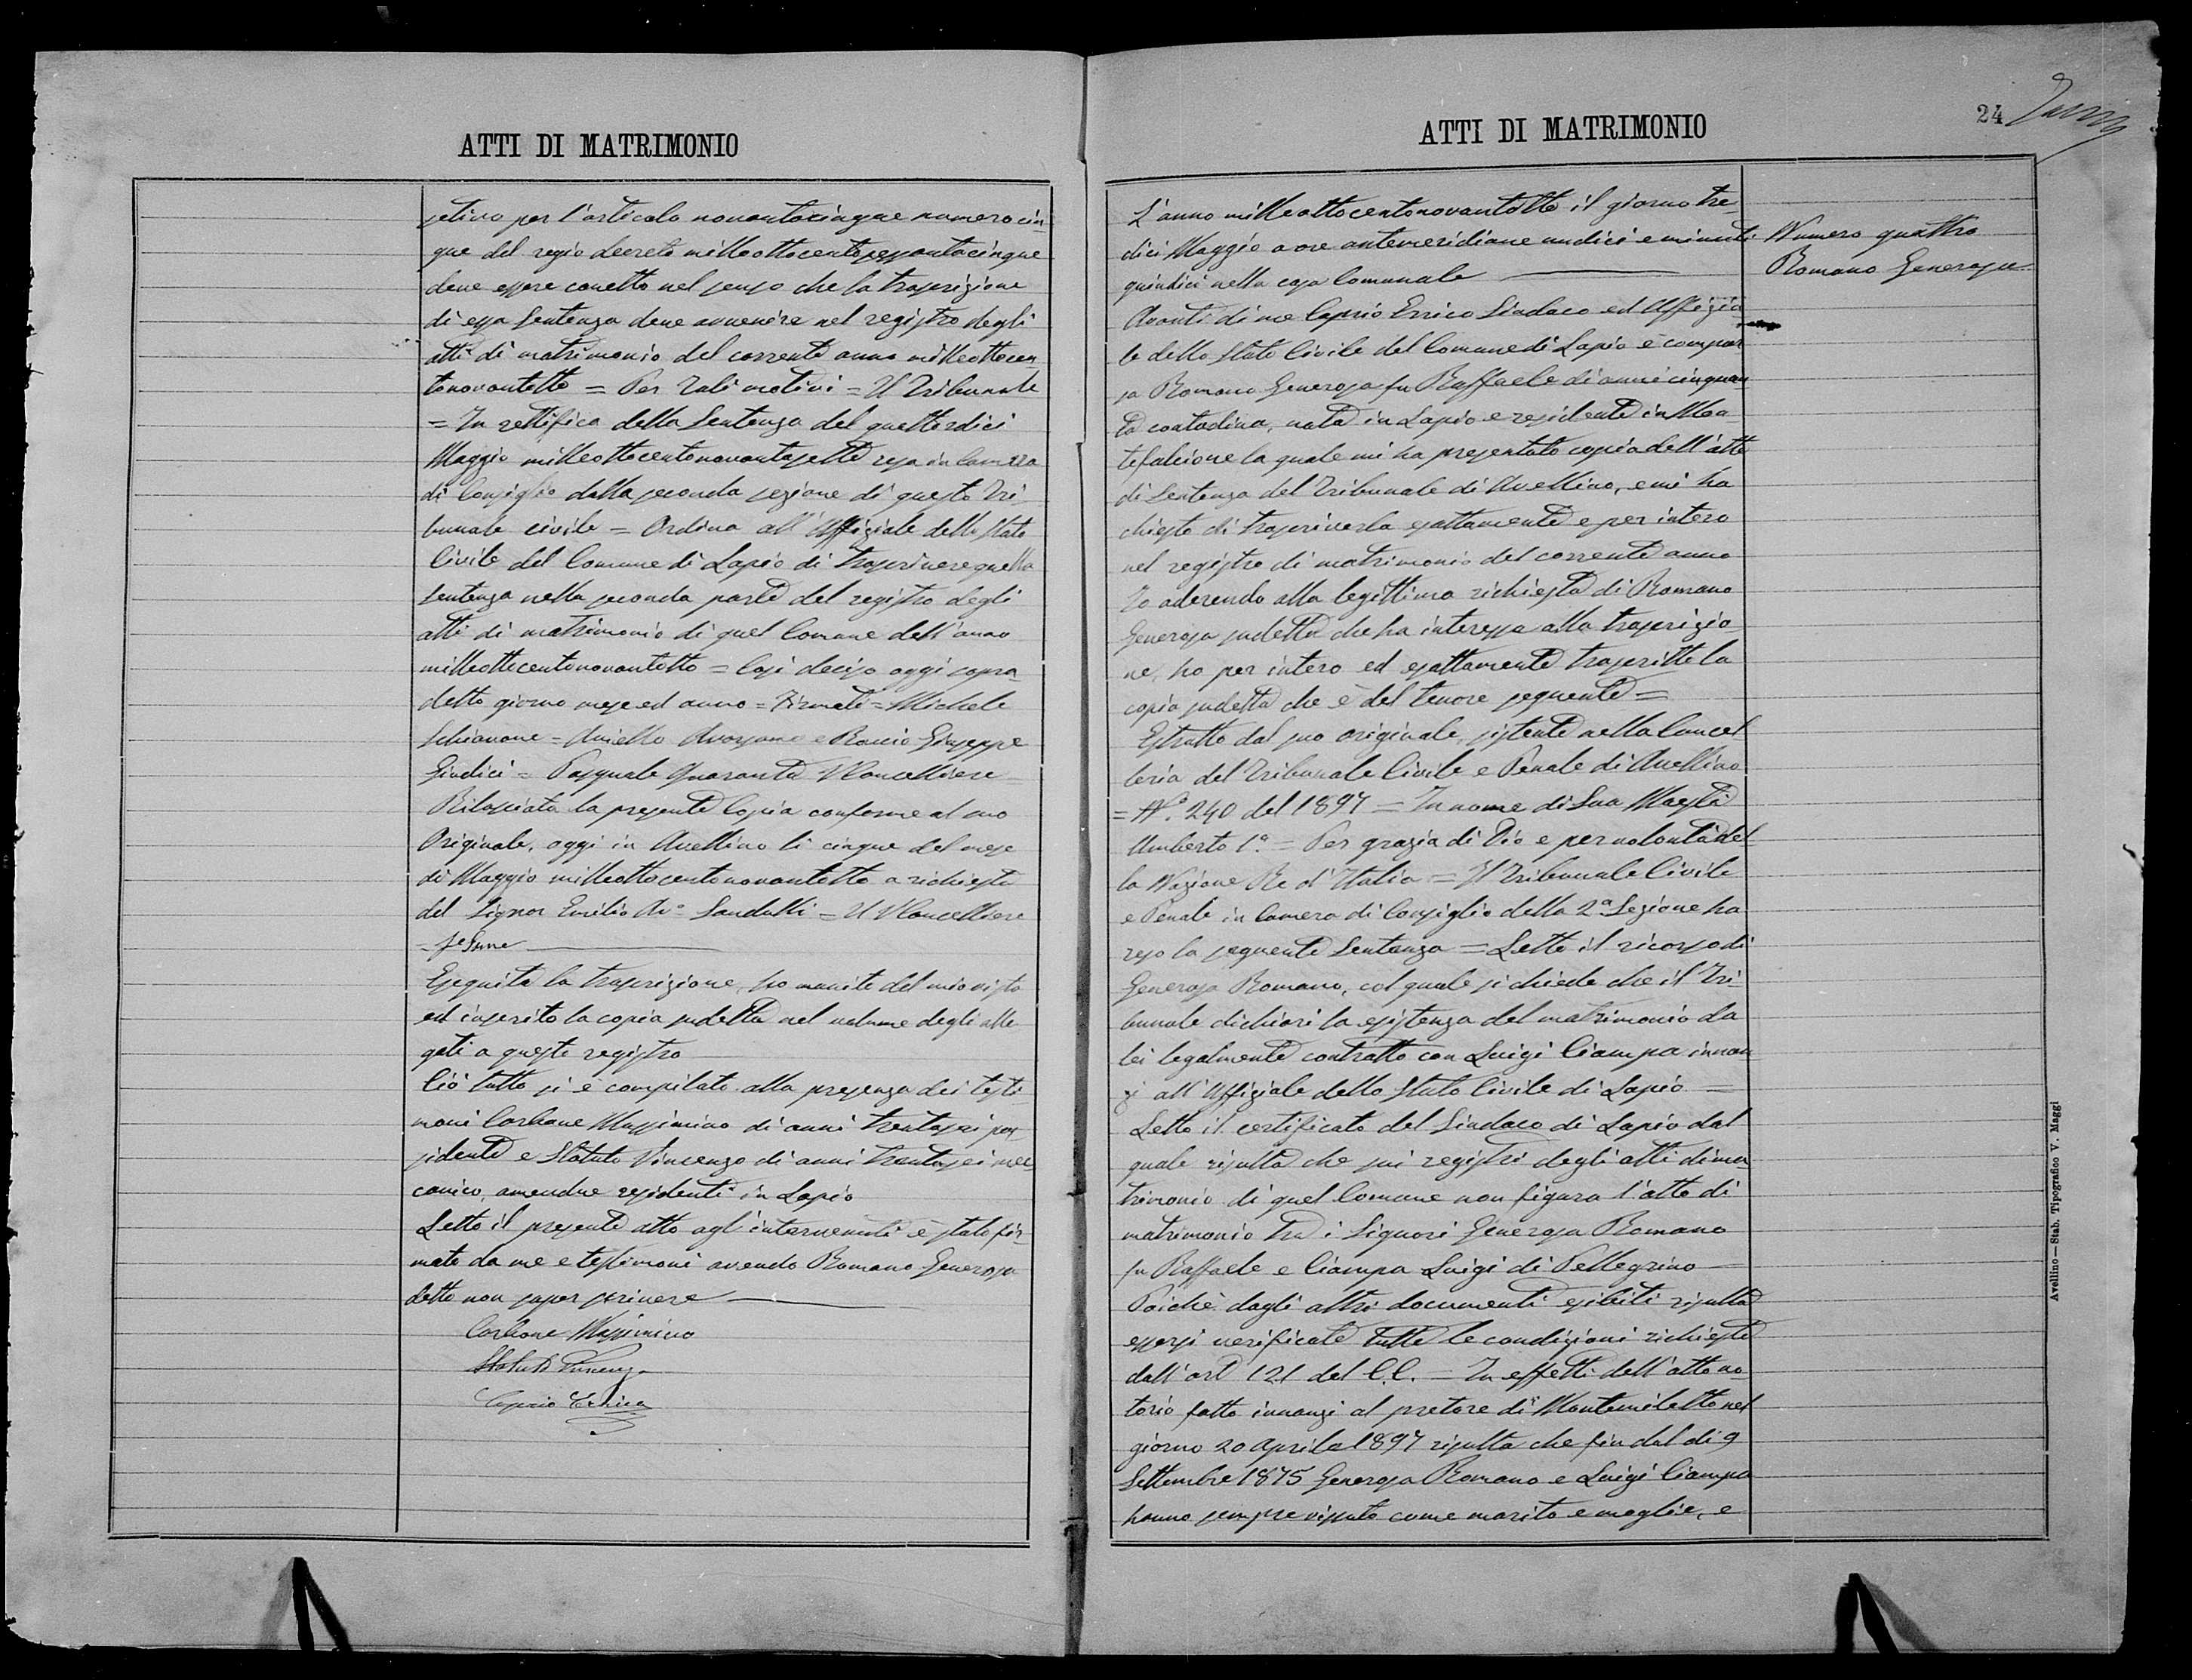 ATTI DI MATRIMONIO
jetivo per l'articolo novantacinque numero cin-
que del regio decreto milleottocentosessantacinque
deve essere corretto nel senso che la trascrizione
di essa Sentenza deve avvenire nel registro degli
atti di matrimonio del corrente anno milleottocen
tonovantotto = Per tali motivi = Il Tribunale
= In rettifica della Sentenza del quattordici
Maggio milleottocentonovantasette resa in Camera
di Consiglio dalla seconda sezione di questo Tri
bunale civile = Ordina all'Uffiziale dello Stato
Civile del Comune di Lapio di trascrivere quella
Sentenza nella seconda parte del registro degli
atti di matrimonio di quel Comune dell'anno
milleottocentonovantotto = Così deciso oggi sopra
detto giorno mese ed anno = Firmati = Michele
Schiavone = Aniello e Giuseppe
Giudici = Pasquale Quaranta VCancelliere
Rilasciata la presente Copia conforme al suo
Originale, oggi in Avellino li cinque del mese
di Maggio milleottocentonovantotto a richiesta
del Signor Emilio Av.o Sandulli = Il VCancelliere
Eseguita la trascrizione, ho munito del mio visto
ed inserito la copia sudetta nel volume degli alle
gati a questo registro
Ciò tutto si è compilato alla presenza dei testi-
moni Carbone Massimino di anni trentasei pos
sidente e Statuto Vincenzo di anni trentasei mec
canico, amendue residenti in Lapio
Letto il presente atto agl'intervenuti è stato fir-
mato da me e testimoni avendo Romano Generosa
detto non saper scrivere
Carbone Massimino
Statuto Vincenzo
Caprio Errico
ATTI DI MATRIMONIO
24
L'anno milleottocentonovantotto il giorno tre-
dici Maggio a ore antemeridiane undici e minuti
quindici nella casa Comunale
Avanti di me Caprio Errico Sindaco ed Uffizia
le dello Stato Civile del Comune di Lapio è compar
sa Romano Generosa fu Raffaele di anni cinquan
ta contadina, nata in Lapio e residente in Mon-
tefalcione la quale mi ha presentato copia dell'atto
di Sentenza del Tribunale di Avellino, e mi ha
chiesto di trascriverla esattamente e per intero
nel registro di matrimonio del corrente anno
Io aderendo alla legittima richiesta di Romano
Generosa sudetta che ha interesse alla trascrizio-
ne, ho per intero ed esattamente trascritto la
copia sudetta che è del tenore seguente =
Estratto dal suo originale, sistente nella Cancel
leria del Tribunale Civile e Penale di Avellino
= N.o 240 del 1897 = In nome di Sua Maestà
Umberto 1.o = Per grazia di Dio e per volontà del
la Nazione Re d'Italia = Il Tribunale Civile
e Penale in Camera di Consiglio della 2.a Sezione ha
reso la seguente Sentenza = Letto il ricorso di
Generosa Romano, col quale si chiede che il Tri-
bunale dichiari la esistenza del matrimonio da
lei legalmente contratto con Luigi Ciampa innan
zi all'Uffiziale dello Stato Civile di Lapio =
Letto il certificato del Sindaco di Lapio dal
quale risulta che sui registri degli atti di ma
trimonio di quel Comune non figura l'atto di
matrimonio tra i Signori Generosa Romano
fu Raffaele e Ciampa Luigi di Pellegrino =
Poichè dagli altri documenti esibiti risulta
essersi verificate tutte le condizioni richieste
dall'art 121 del C.C. = In effetti dell'atto no-
torio fatto innanzi al pretore di Montemiletto nel
giorno 20 Aprile 1897 risulta che fin dal di 9
Settembre 1875 Generosa Romano e Luigi Ciampa
hanno sempre vissuto come marito e moglie, e
Numero quattro
Romano Generosa
Avellino — Stab. Tipografico V. Maggi